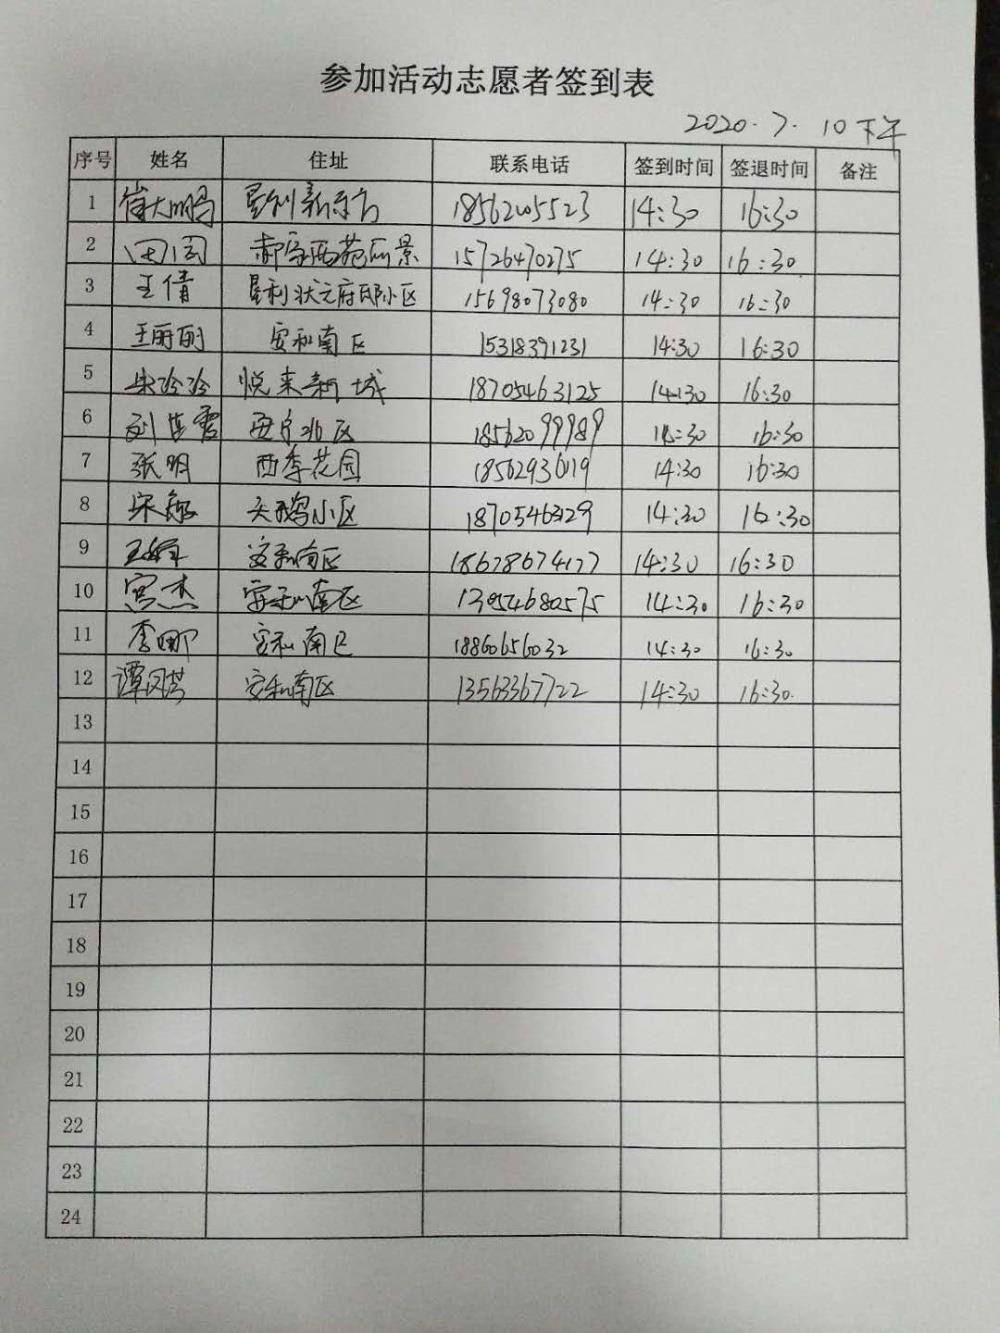 参加活动志愿者签到表
2020.7.10下午
序号 姓名 住址 联系电话 签到时间 签退时间 备注
1 崔大鹏 星利新东方 18562005523 14:30 16:30
2 田 15726470275 14:30 16:30
3 王倩 星利状元府邸小区 15698073080 14:30 16:30
4 王丽丽 安和南区 15318391231 14:30 16:30
5 宋玲玲 悦来新城 18705463125 14:30 16:30
6 刘 西宁北区 18562099989 14:30 16:30
7 张明 四季花园 14:30 16:30
8 宋 天鹅小区 18705463129 14:30 16:30
9 王 安和南区 18678674177 14:30 16:30
10 宫杰 安和南区 13054680575 14:30 16:30
11 李娜 安和南区 18860656032 14:30 16:30
12 谭 安和南区 13563367722 14:30 16:30
13
14
15
16
17
18
19
20
21
22
23
24